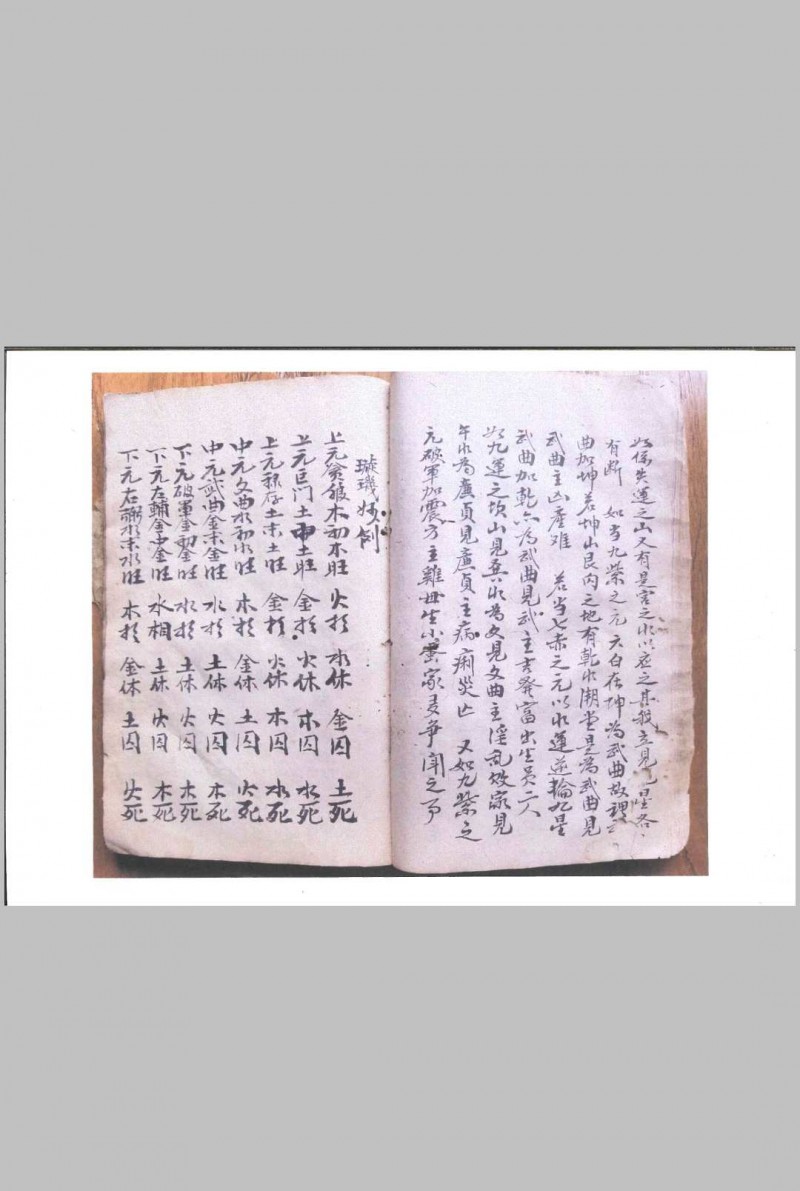 如係失運之山又有是宮之水以應之其殺立見九星各
有斷 如当九紫之元六白在坤為武曲故理云
曲加坤若坤山艮内之地有乾水潮堂是為武曲見
武曲主凶產难 若当七赤之元以水運逆輪九星
武曲加乾六為武曲見武主吉發富出生員二人
如九運之坎山見巽水為文見文曲主淫乱敗家見
午水為廉貞見廉貞主病痢災凶 又如九紫之
元破軍加震方主難母生小蛋家多争闻之事
璇璣妙例
上元貪狼木初木旺 火相 水休 金囚 土死
上元巨门土中土旺 金相 火休 木囚 水死
上元禄存土末土旺 金相 火休 木囚 水死
中元文曲水初水旺 木相 金休 土囚 火死
中元武曲金末金旺 水相 土休 火囚 木死
下元破軍金初金旺 水相 土休 火囚 木死
下元左輔金中金旺 水相 土休 火囚 木死
下元右弼水末水旺 木相 金休 土囚 火死